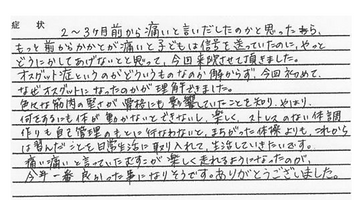 症 状
２〜３ヶ月前から痛いと言いだしたのかと思ったら、
もっと前からかかとが痛いと子どもは信号を送っていたのに、やっと
どうにかしてあげないとと思って、今回来院させて頂きました。
オスグット症というのがどういうものなのか解からず、今回初めて、
なぜオスグットになったのかが理解できました。
色々な筋肉の堅さが骨格にも影響していたことを知り、やはり
何をするにも体が動かないとできないし、楽しく、ストレスのない体調
作りも自己管理のもとに行なわないと、まちがった体操よりも、これから
は習んだことを日常生活に取り入れて、生活していきたいです。
痛い痛いと言っていたむすこが楽しく走れるようになったのが、
今年一番良かった事になりそうです。ありがとうございました。